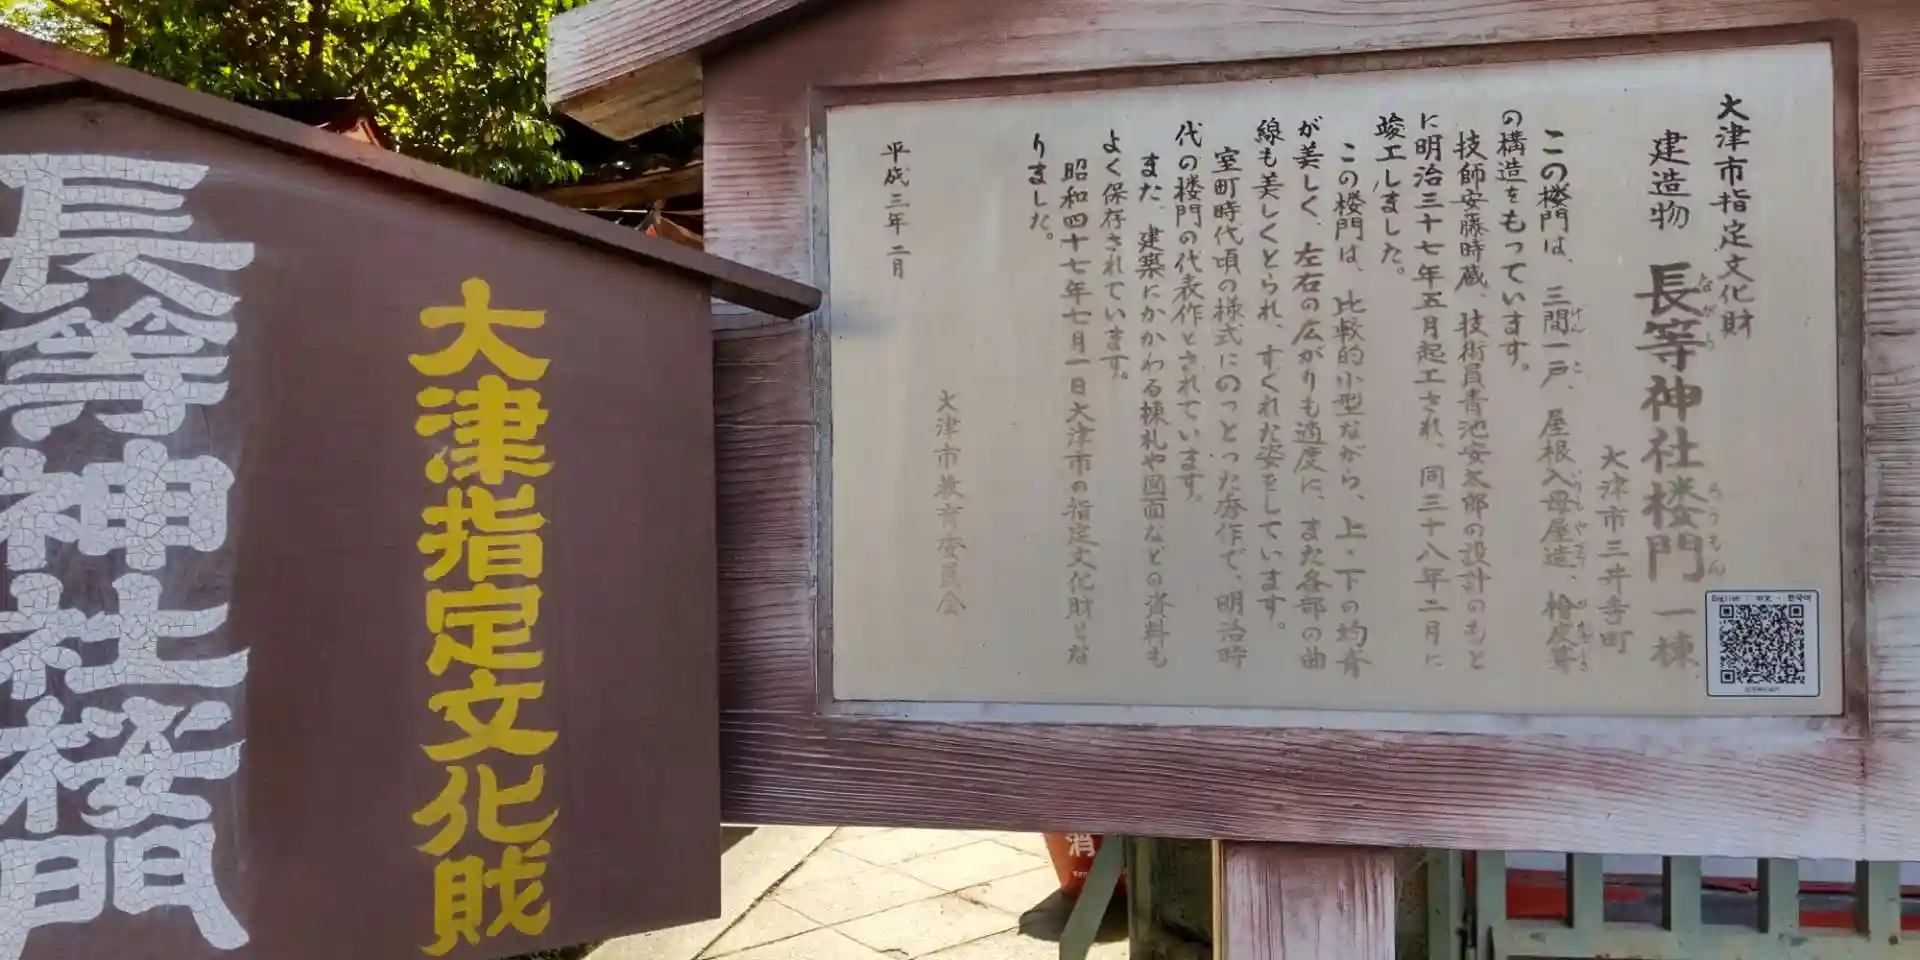 長等神社楼門
大津指定文化財
大津市指定文化財
建造物 長等神社楼門 一棟
ながら
ろうもん
大津市三井寺町
この楼門は、三間一戸、屋根入母屋造、檜皮葺
けん
こ
いりもやぞう
ひわだぶき
の構造をもっています。
技師安藤時蔵、技術員青池安太郎の設計のもと
に明治三十七年五月起工され、同三十八年二月に
竣工しました。
この楼門は、比較的小型ながら、上・下の均斉
が美しく、左右の広がりも適度に、また各部の曲
線も美しくとられ、すぐれた姿をしています。
室町時代頃の様式にのっとった秀作で、明治時
代の楼門の代表作とされています。
また、建築にかかわる棟札や図面などの資料も
よく保存されています。
昭和四十七年七月一日大津市の指定文化財とな
りました。
大津市教育委員会
平成三年二月
English ・ 中文 ・ 한국어
消